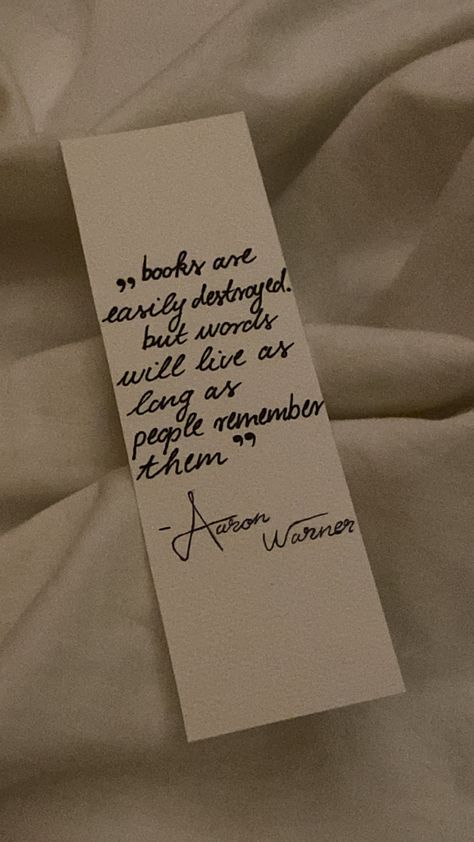 „books are
easily destroyed.
but words
will live as
long as
people remember
them”
- Aaron
Warner